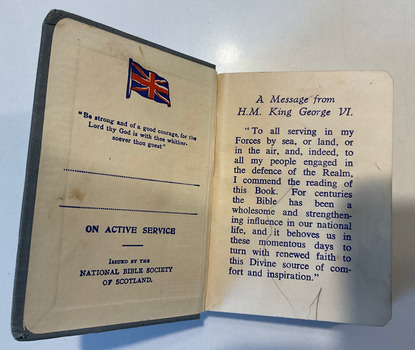 "Be strong and of a good courage, for the
Lord thy God is with thee whither-
soever thou goest"
ON ACTIVE SERVICE
ISSUED BY THE
NATIONAL BIBLE SOCIETY
OF SCOTLAND.
A Message from
H.M. King George VI.
"To all serving in my
Forces by sea, or land, or
in the air, and, indeed, to
all my people engaged in
the defence of the Realm,
I commend the reading of
this Book. For centuries
the Bible has been a
wholesome and strengthen-
ing influence in our national
life, and it behoves us in
these momentous days to
turn with renewed faith to
this Divine source of com-
fort and inspiration."